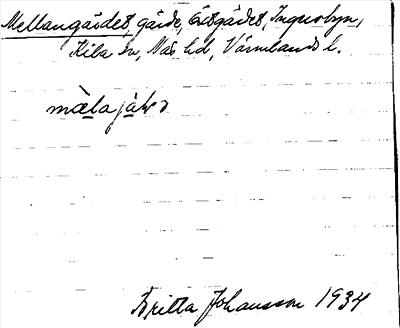 Mellangärdet, gärde, Östgärdet, Ingersbyn,
Kila sn, Näs hd, Värmlands l.
mæ̀la jæ̀ḷə
Britta Johansson 1934